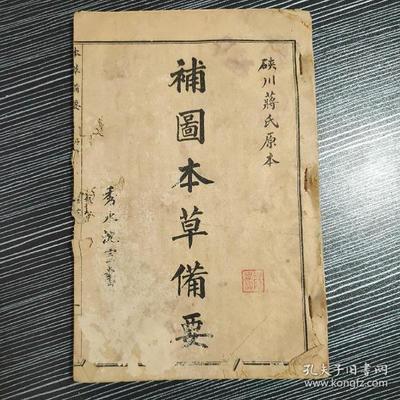 硤川蔣氏原本
補圖本草備要
秀水沈
本草備要
孔夫子旧書网
www.kongfz.com